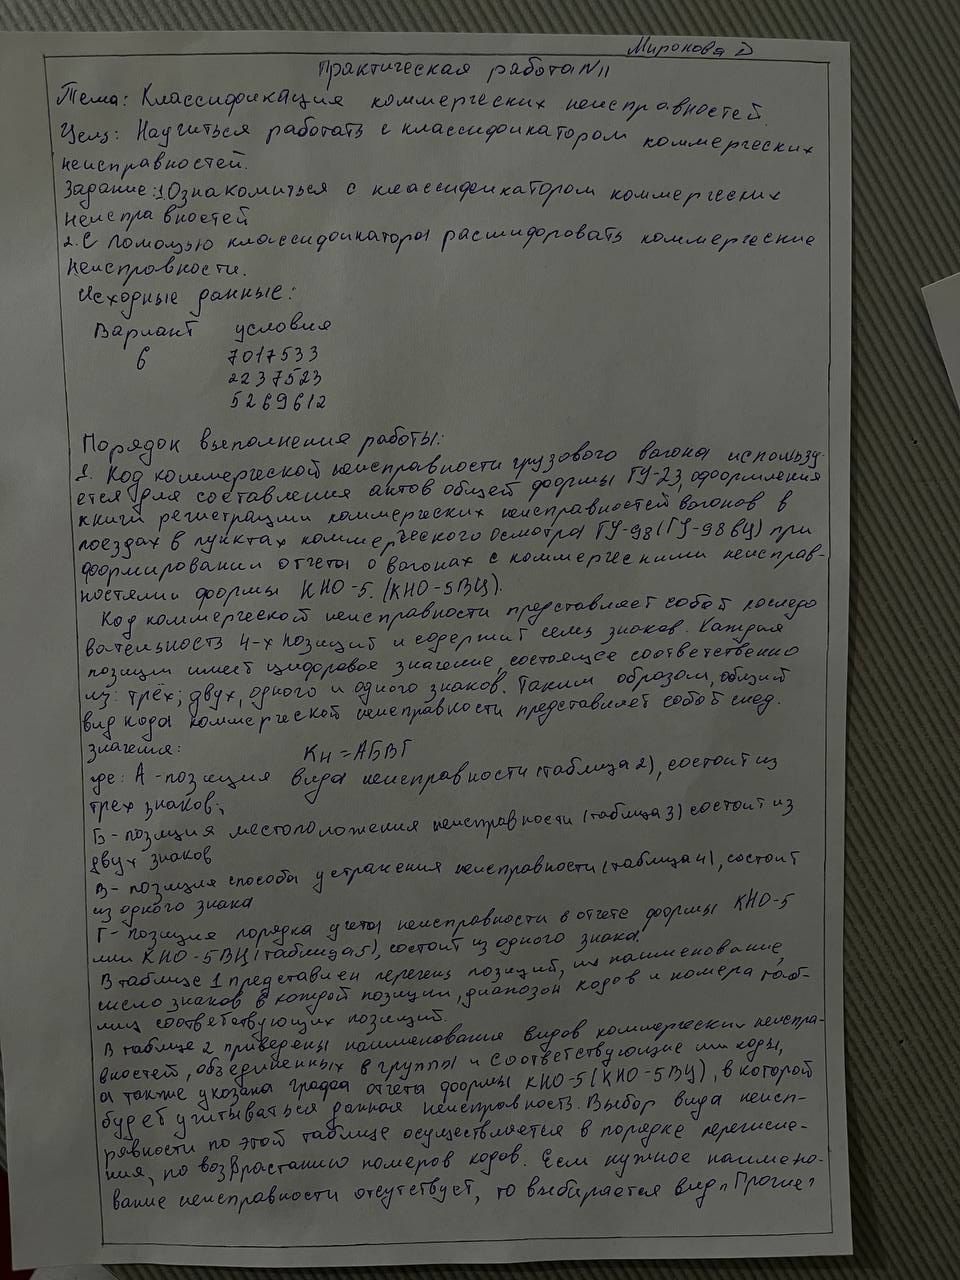 Миронова Д
Практическая работа №11
Тема: Классификация коммерческих неисправностей.
Цель: Научиться работать с классификатором коммерческих
неисправностей.
Задание: 1 Ознакомиться с классификатором коммерческих
неисправностей
2. С помощью классификатора расшифровать коммерческие
неисправности.
Исходные данные:
Вариант условия
6 7017533
2237523
5269612
Порядок выполнения работы:
1. Код коммерческой неисправности грузового вагона использу-
ется для составления актов общей формы ГУ-23, оформления
книги регистрации коммерческих неисправностей вагонов в
поездах в пунктах коммерческого осмотра ГУ-98 (ГУ-98 ВЦ) при
формировании отчета о вагонах с коммерческими неисправ-
ностями формы КНО-5. (КНО-5ВЦ).
Код коммерческой неисправности представляет собой последо
вательность 4-х позиций и содержит семь знаков. Каждая
позиции имеет цифровое значение, состоящее соответственно
из: трёх; двух, одного и одного знаков. Таким образом, общий
вид кода коммерческой неисправности представляет собой след.
значения:
Кн = АБВГ
где: А - позиция вида неисправности (таблица 2), состоит из
трех знаков;
Б - позиция местоположения неисправности (таблица 3) состоит из
двух знаков
В - позиция способа устранения неисправности (таблица 4), состоит
из одного знака
Г - позиция порядка учета неисправности в отчете формы КНО-5
или КНО-5ВЦ (таблица 5), состоит из одного знака.
В таблице 1 представлен перечень позиций, их наименование,
число знаков в каждой позиции, диапозон кодов и номера таб-
лиц соответствующих позиций.
В таблице 2 приведены наименование видов коммерческих неиспра-
вностей, объединенных в группы и соответствующие им коды,
а также указана графа отчета формы КНО-5 (КНО-5ВЦ), в которой
будет учитываться данная неисправность. Выбор вида неисп-
равности по этой таблице осуществляется в порядке перечисле-
ния, по возврастанию номеров кодов. Если нужное наимено-
вание неисправности отсутствует, то выбирается вид "Прочие"